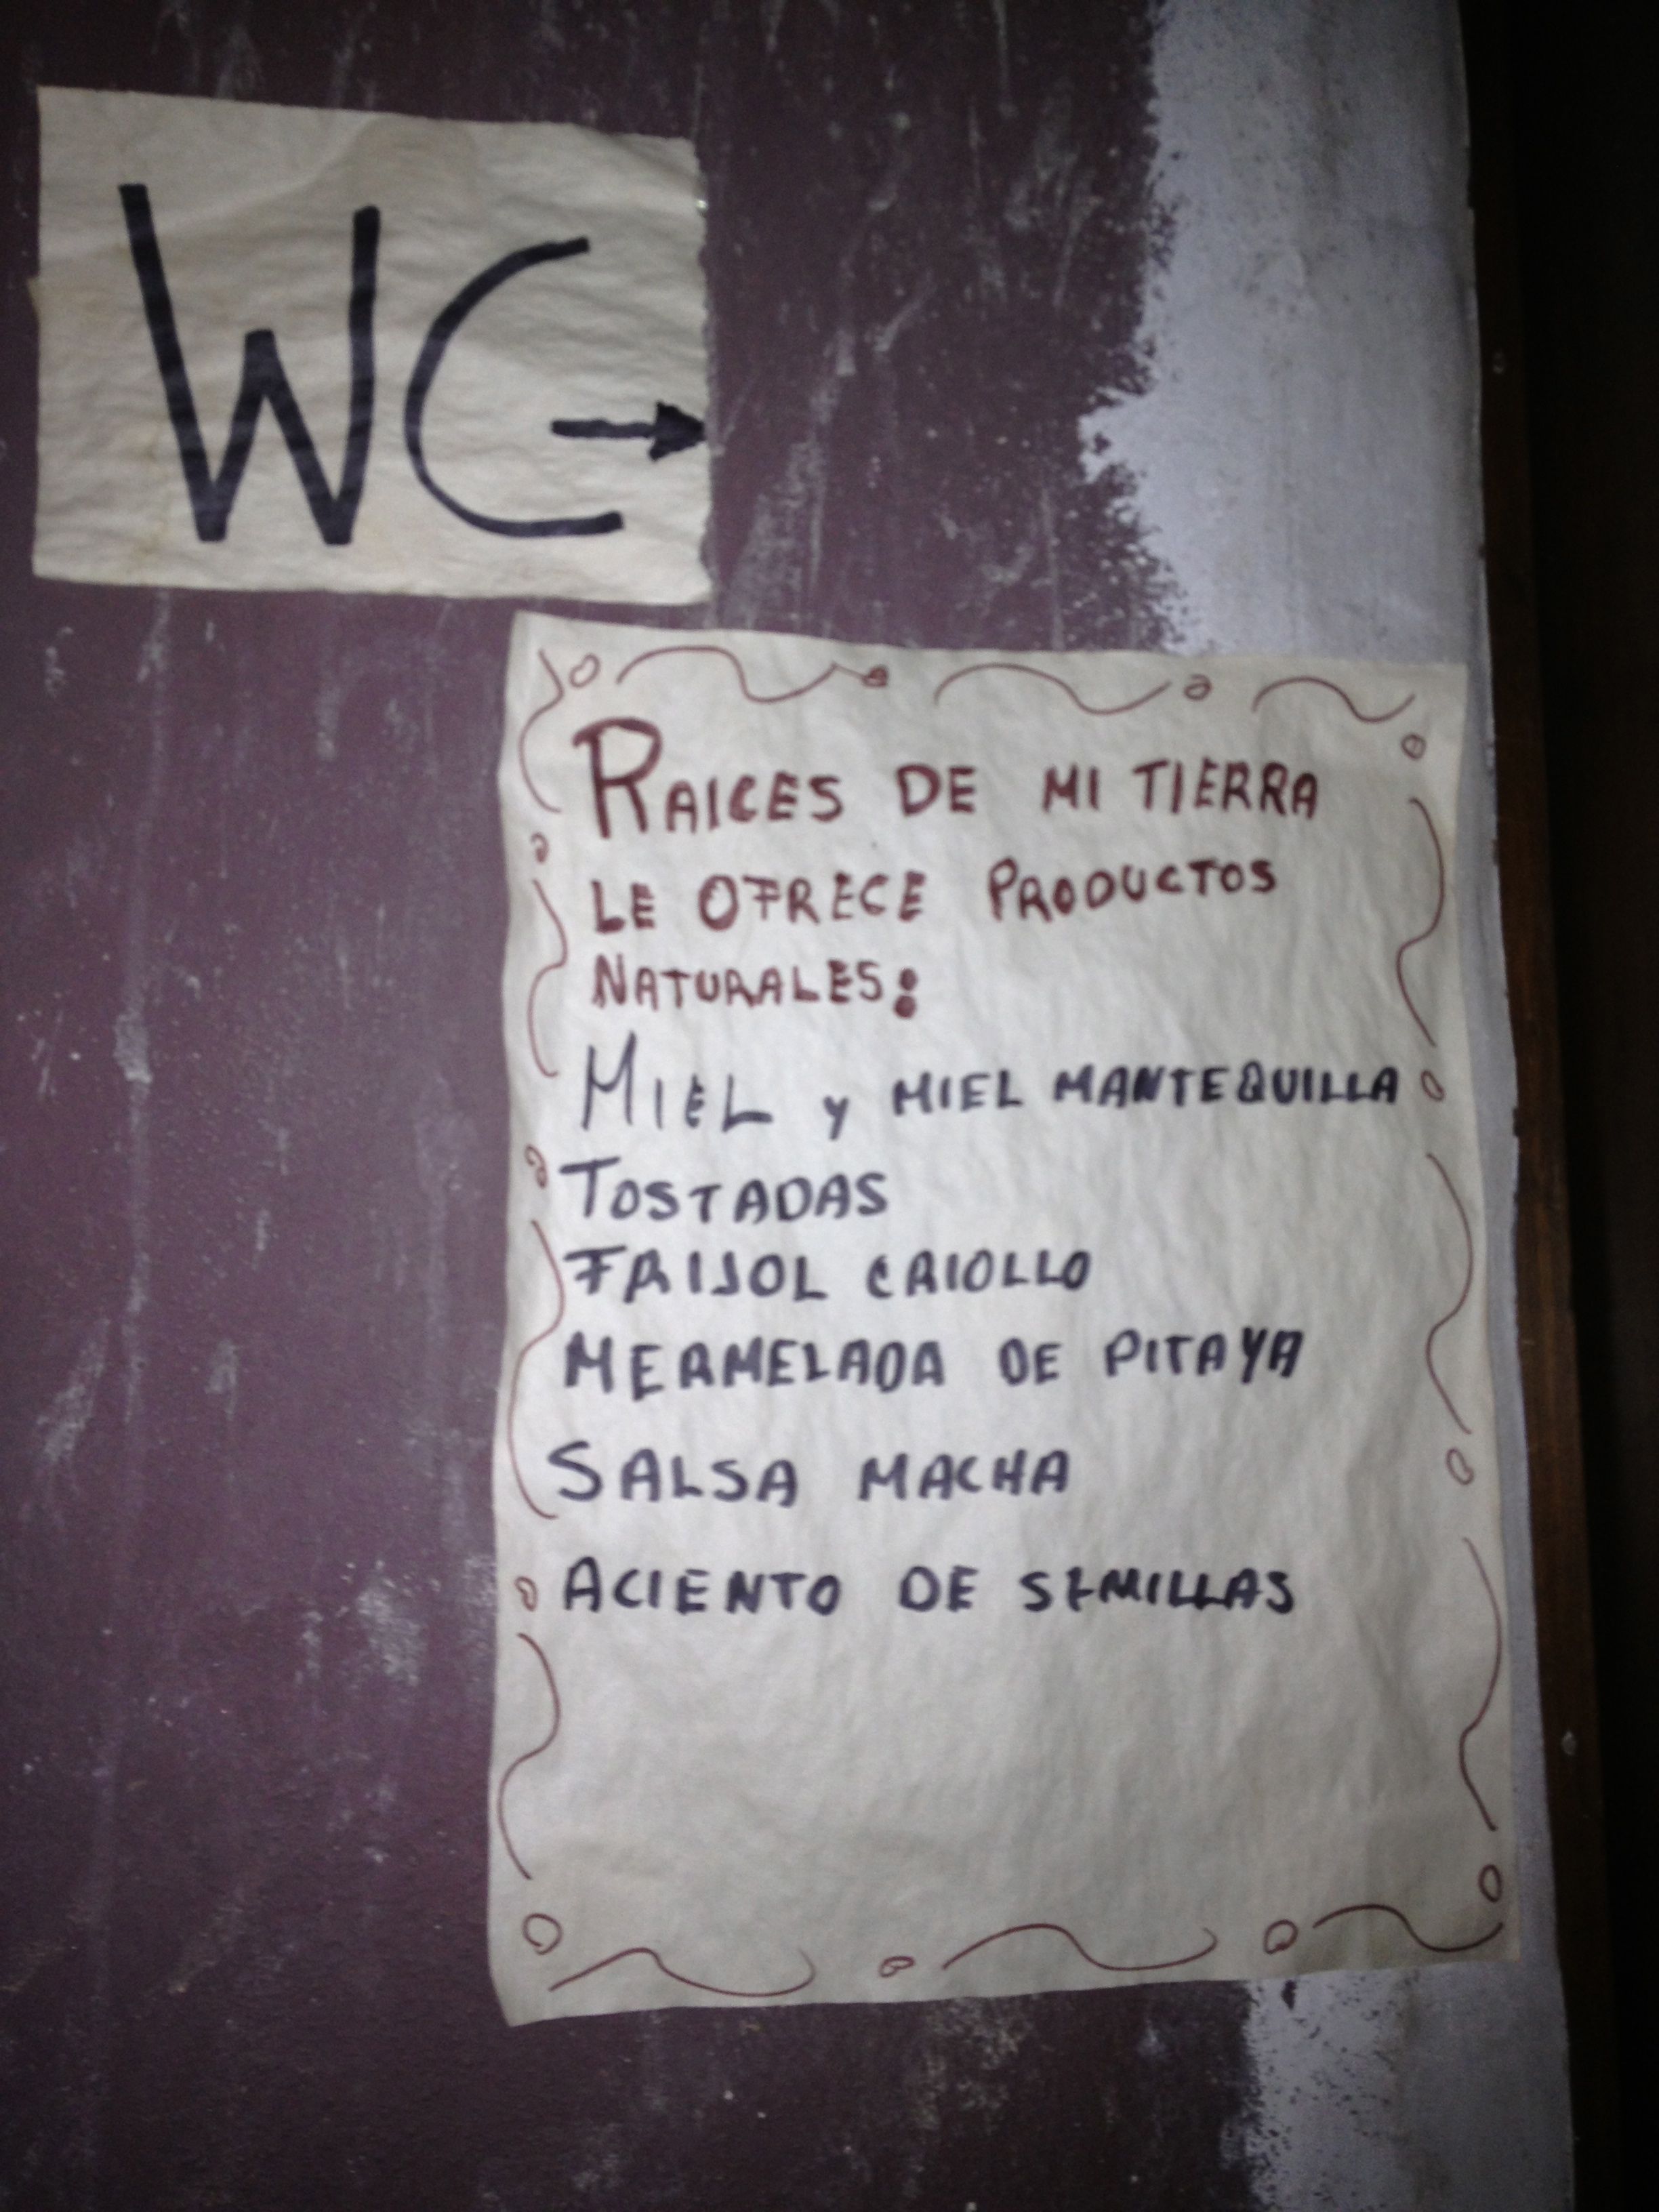 WC
RAICES DE MI TIERRA
LE OFRECE PRODUCTOS
NATURALES:
MIEL y MIEL MANTEQUILLA
TOSTADAS
FRIJOL CRIOLLO
MERMELADA DE PITAYA
SALSA MACHA
ACIENTO DE SEMILLAS